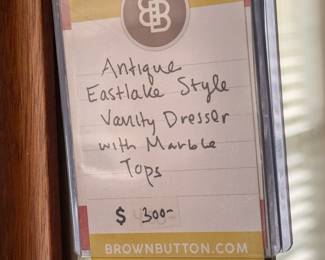 BB
Antique
Eastlake Style
Vanity Dresser
with Marble
Tops
$ 300-
BROWNBUTTON.COM